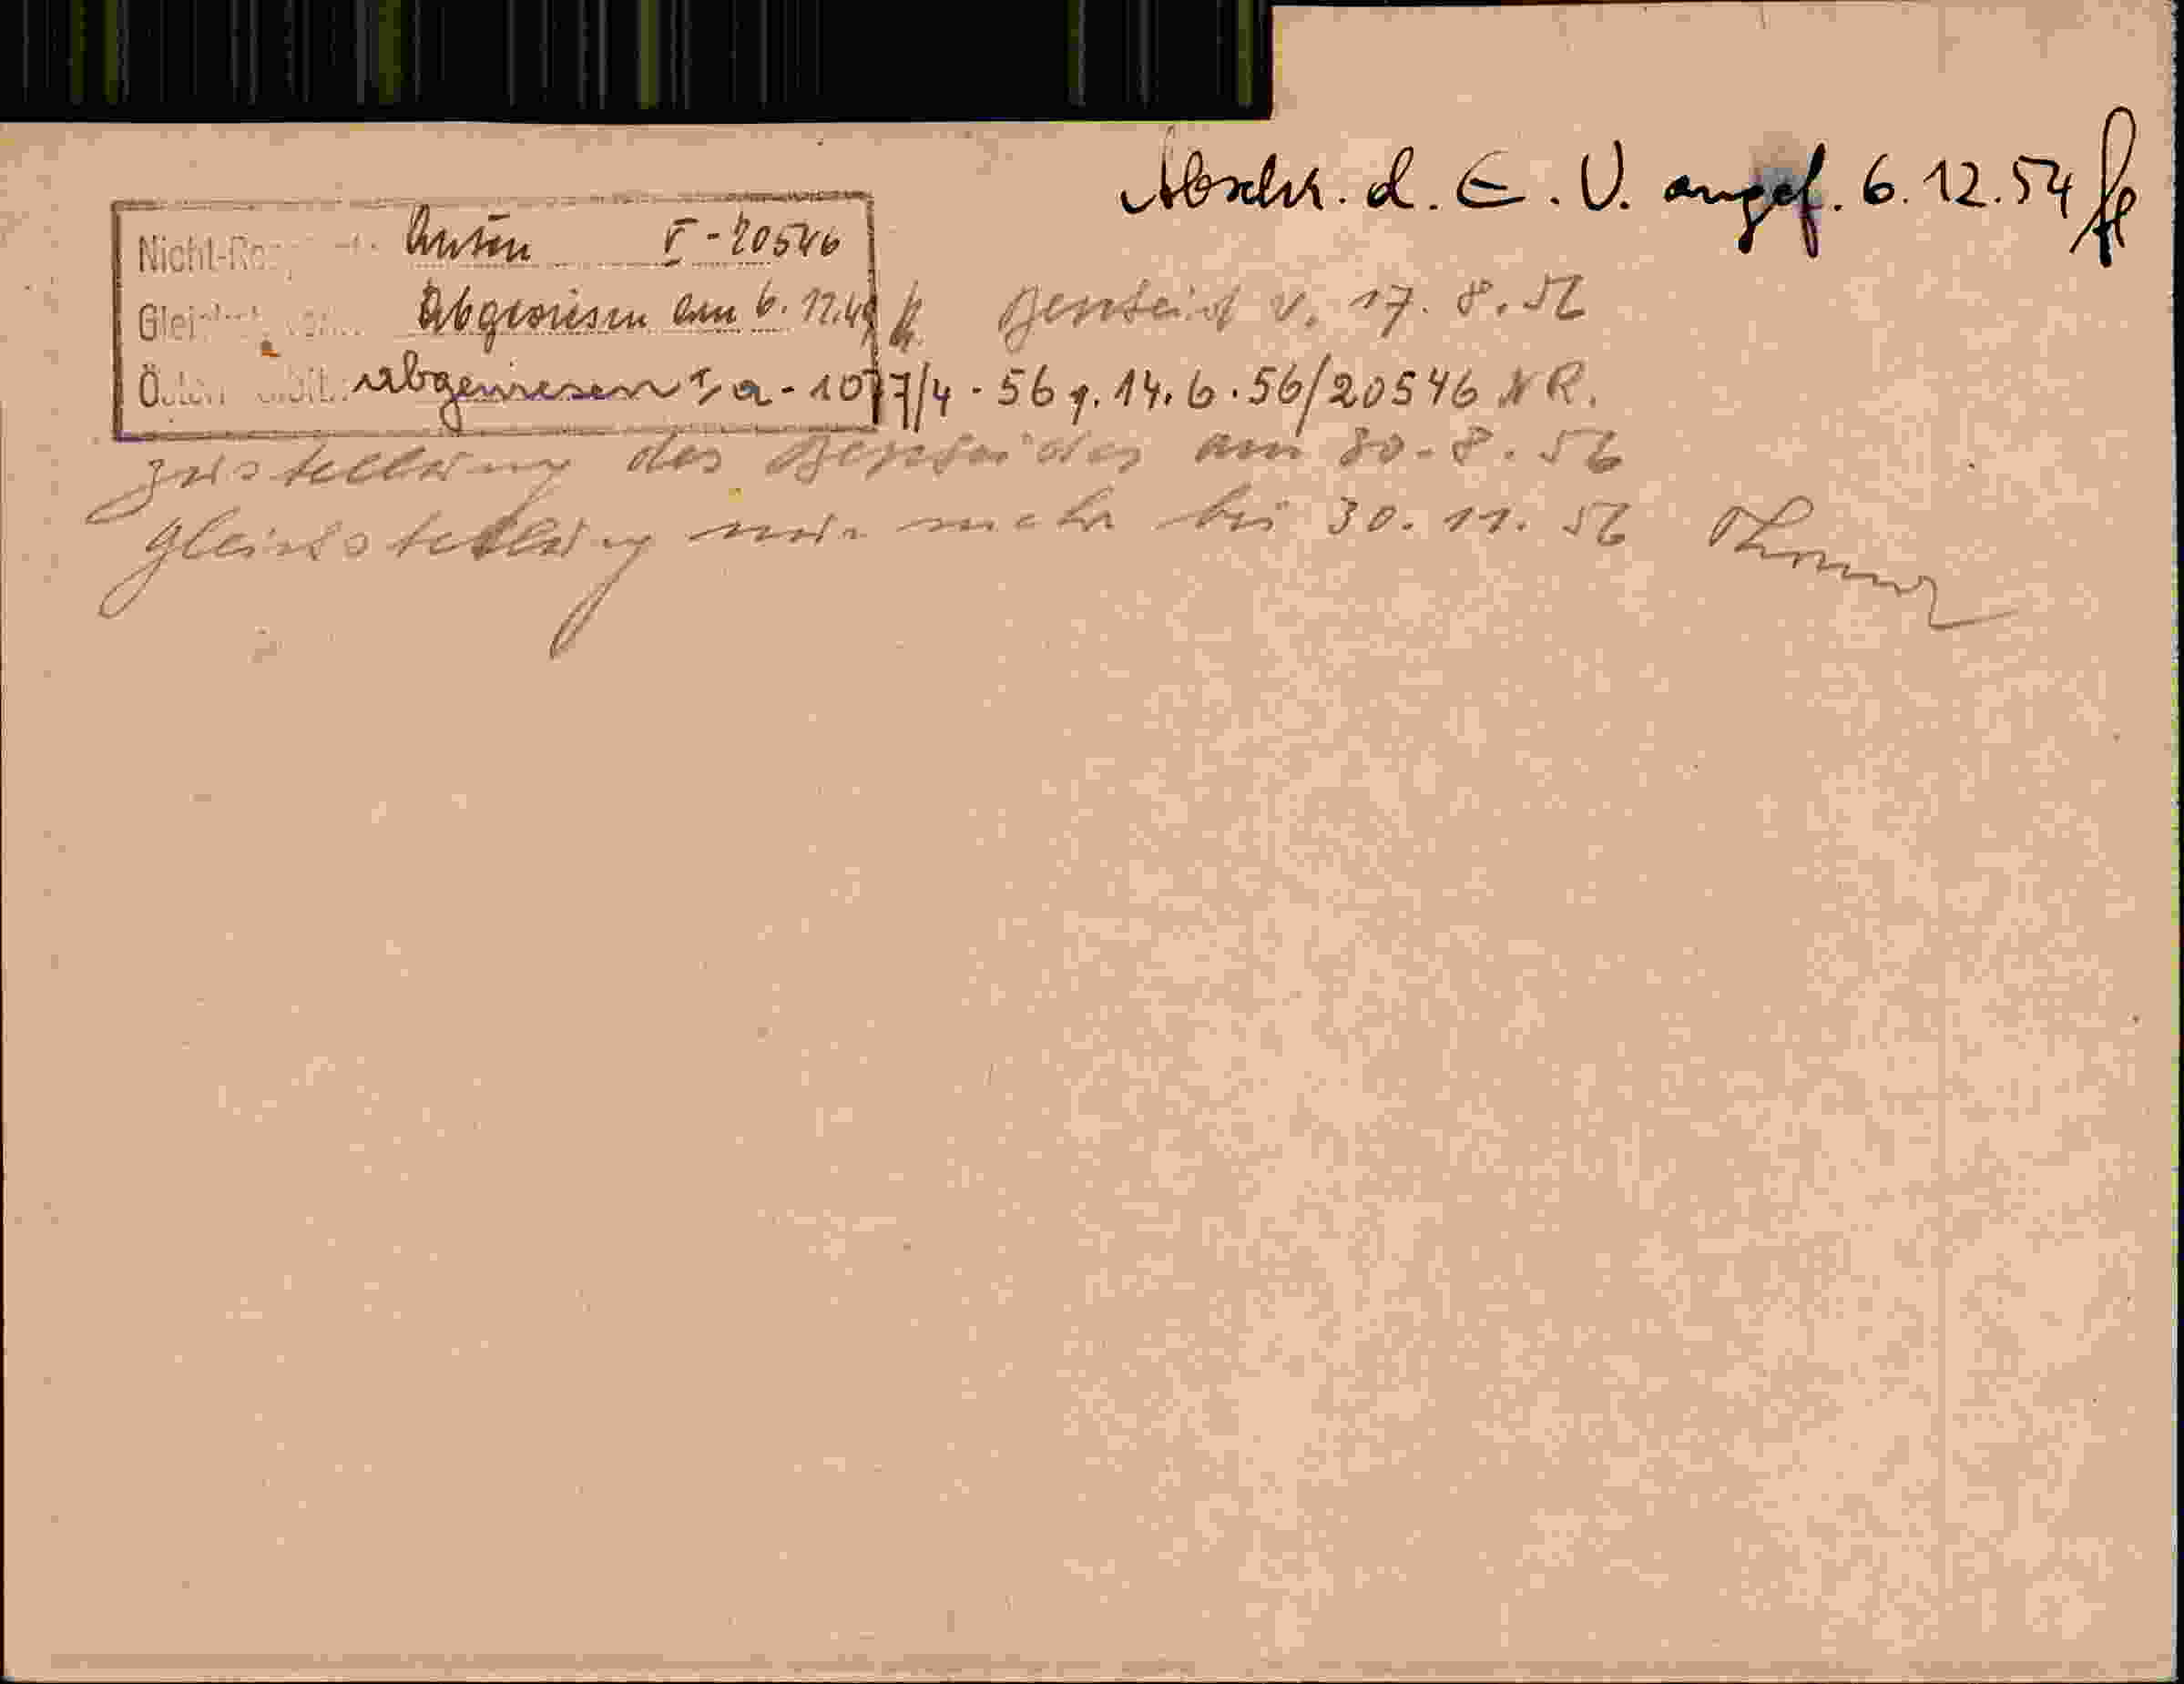 Abschr. d. E. V. angef. 6. 12. 54
Antrag V - 20546
Abgewiesen am 6. 12. 49
Bescheid v. 17. 8. 56
abgewiesen I a - 1077/4 - 56 v. 14. 6. 56/20546 NR.
Zustellung des Bescheides am 30. 8. 56
Gleichstellung nur mehr bis 30. 11. 56